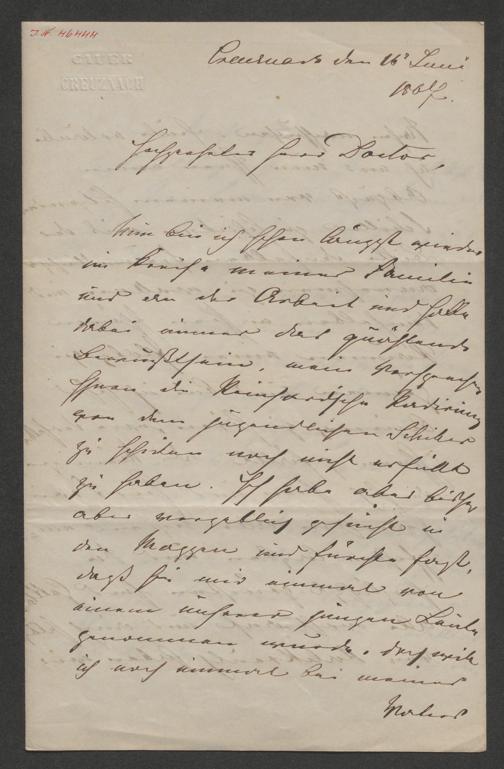 J.N. 46444
CAUER
CREUZNACH
Creuznach den 16t Juni
1867.
Hochgeehrter Herr Doctor,
Nun bin ich schon längst wieder
im Kreise meiner Familie
und an der Arbeit und habe
dabei immer das quälende
Bewußtsein, mein Versprechen
Ihnen die Reinhard'sche Radirung
von dem jugendlichen Schiller
zu schicken noch nicht erfüllt
zu haben. Ich habe aber bisher
aber vergeblich gesucht in
den Mappen und fürchte fast,
daß sie mir einmal von
einem unserer jungen Leute
genommen wurde, doch will
ich noch einmal bei meinem
Vater